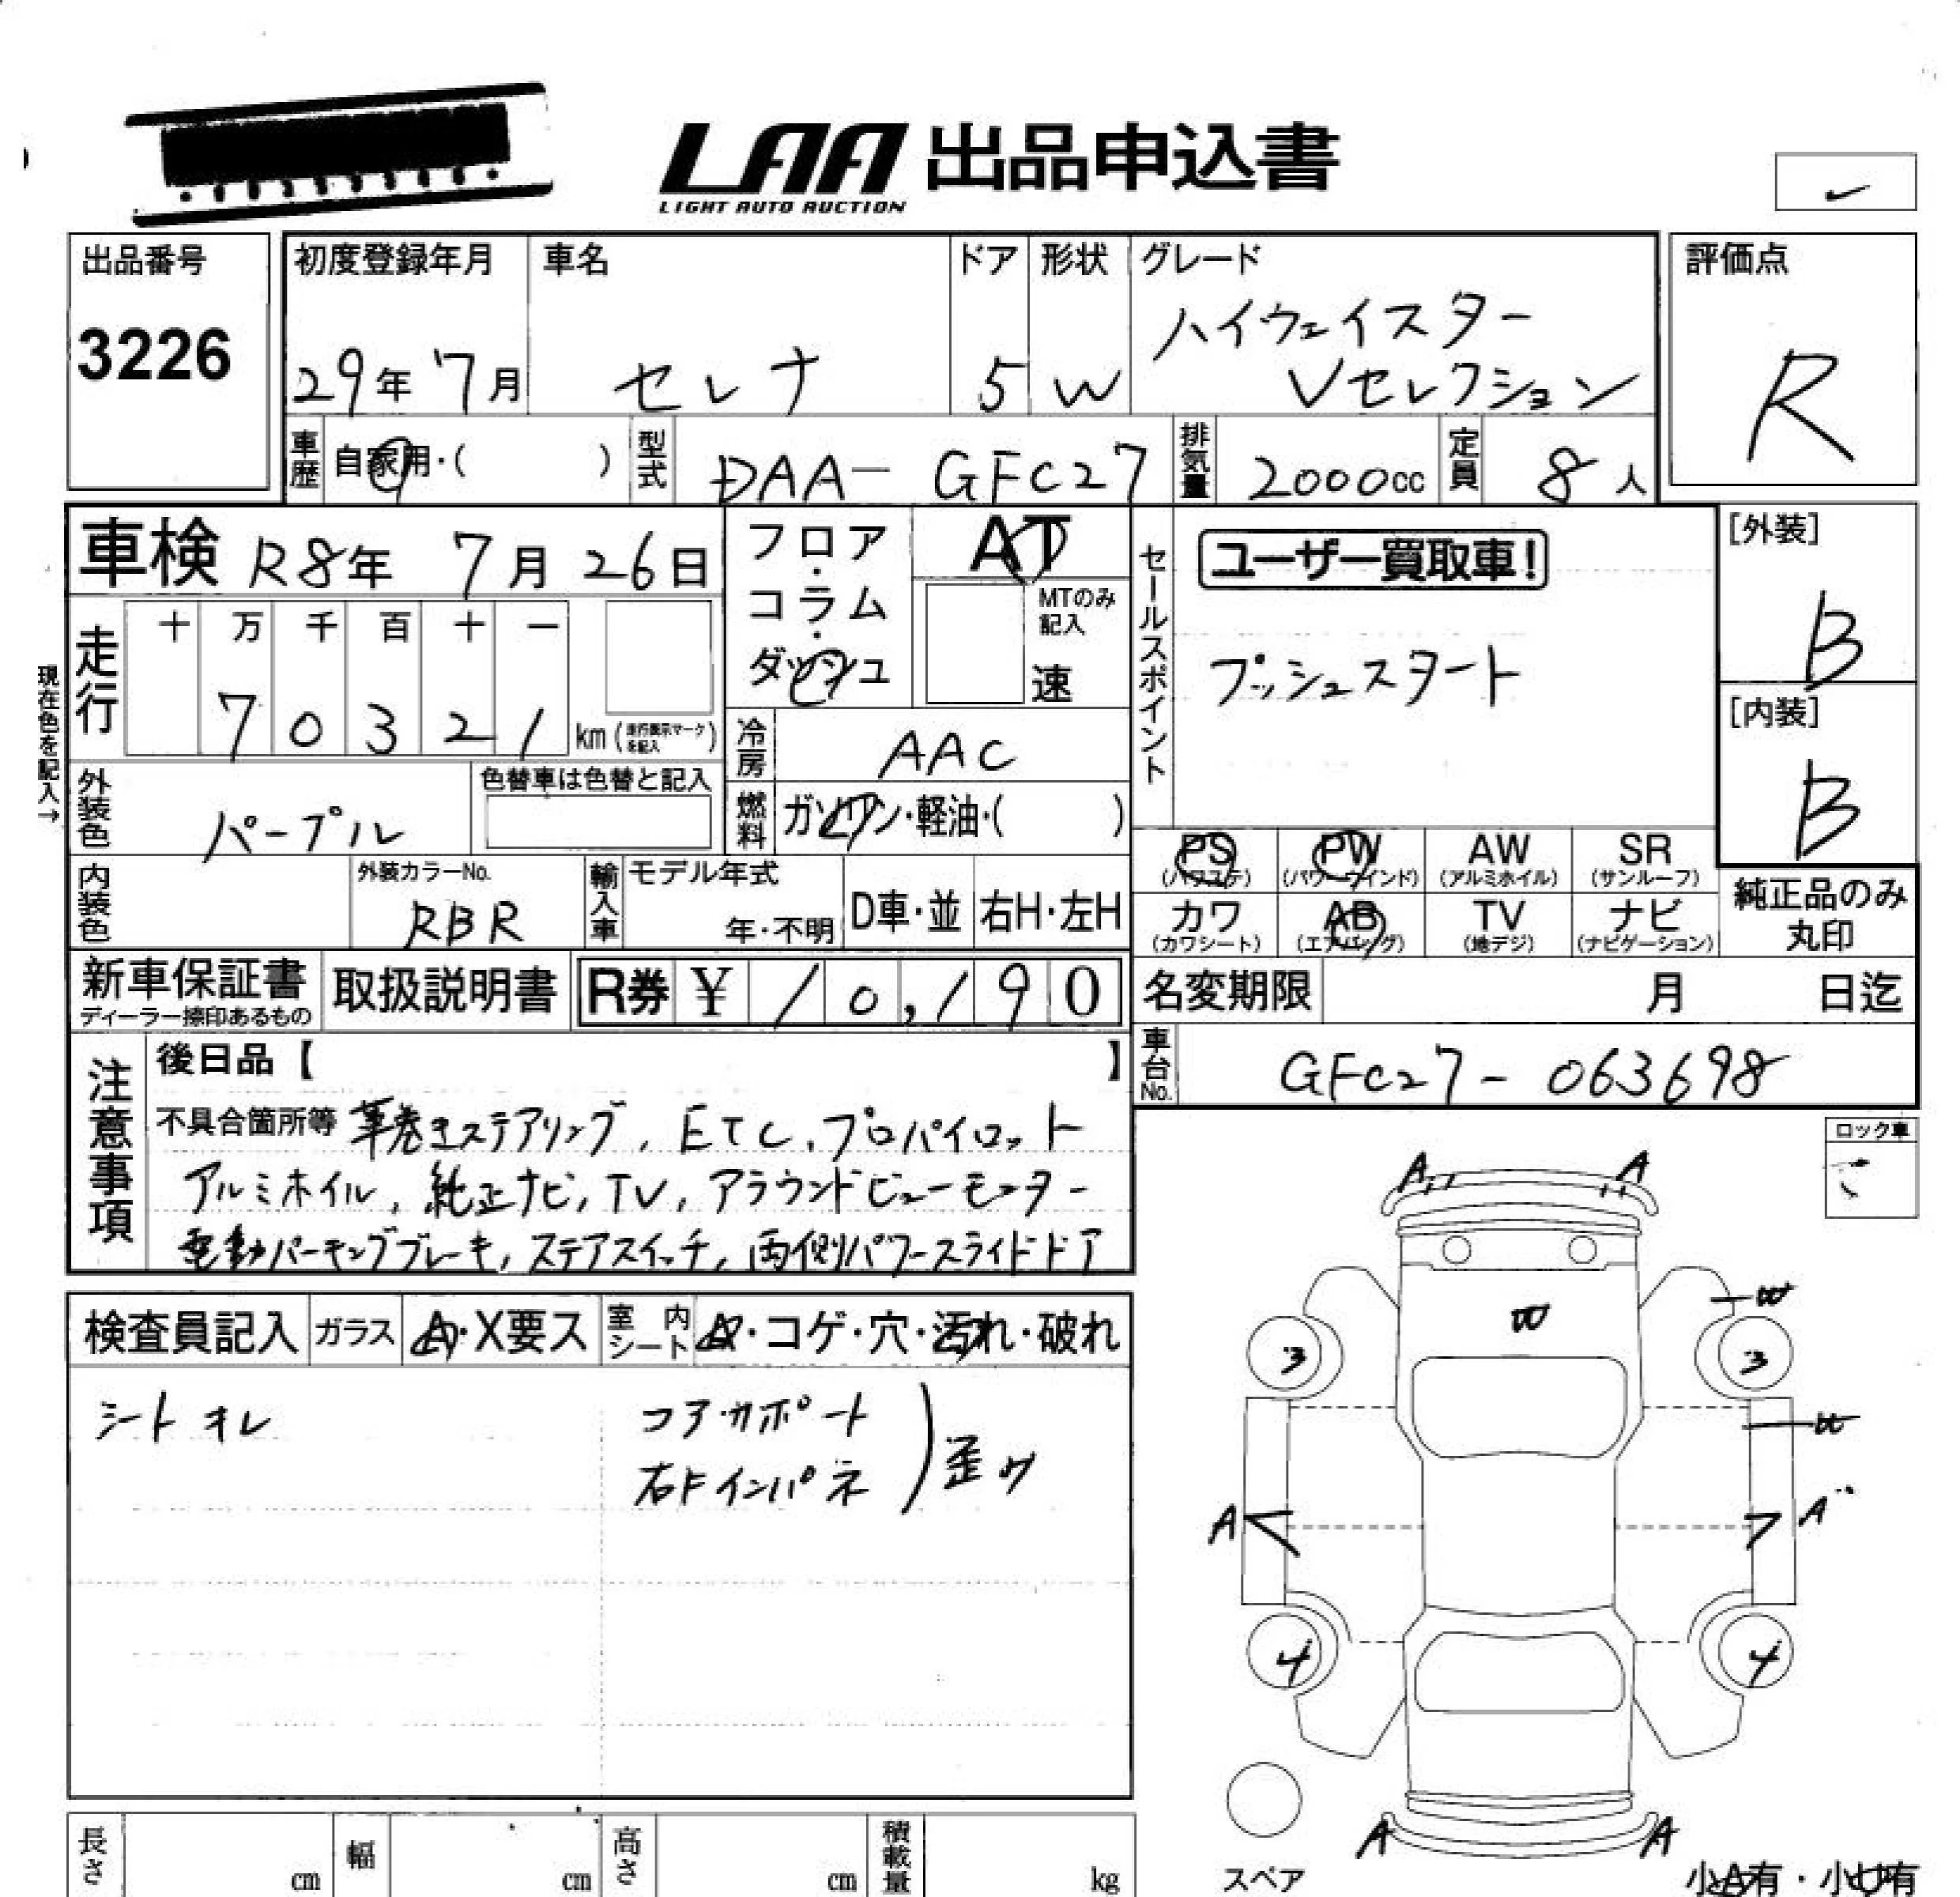 LAA 出品申込書
LIGHT AUTO AUCTION
出品番号
3226
初度登録年月
29年 7月
車名
セレナ
ドア
5
形状
W
グレード
ハイウェイスター
Vセレクション
評価点
R
車歴
自家用・( )
型式
DAA- GFC27
排気量
2000cc
定員
8人
車検 R8年 7月 26日
フロア・コラム・ダッシュ
AT
MTのみ記入
速
セールスポイント
ユーザー買取車!
プッシュスタート
[外装]
B
[内装]
B
現在色を記入→
走行
十 万 千 百 十 一
7 0 3 2 1 km(走行表示マークを記入)
冷房
AAC
燃料
ガソリン・軽油・( )
外装色
パープル
色替車は色替と記入
内装色
外装カラーNo.
RBR
輸入車
モデル年式
年・不明
D車・並
右H・左H
PS
(パワステ)
PW
(パワーウインド)
AW
(アルミホイル)
SR
(サンルーフ)
カワ
(カワシート)
AB
(エアバッグ)
TV
(地デジ)
ナビ
(ナビゲーション)
純正品のみ
丸印
新車保証書
ディーラー捺印あるもの
取扱説明書
R券 ¥ 10,190
名変期限 月 日迄
車台No.
GFC27- 063698
注意事項
後日品【 】
不具合箇所等 革巻きステアリング, ETC, プロパイロット
アルミホイル, 純正ナビ, TV, アラウンドビューモニター
電動パーキングブレーキ, ステアスイッチ, 両側パワースライドドア
ロック車
検査員記入
ガラス
A・X要ス
室内シート
A・コゲ・穴・汚れ・破れ
シートキレ
コアサポート
右Fインパネ
歪ワ
A A
W
W
3 3
W
A A
4 4
A A
スペア
小A有・小U有
長さ cm
幅 cm
高さ cm
積載量 kg